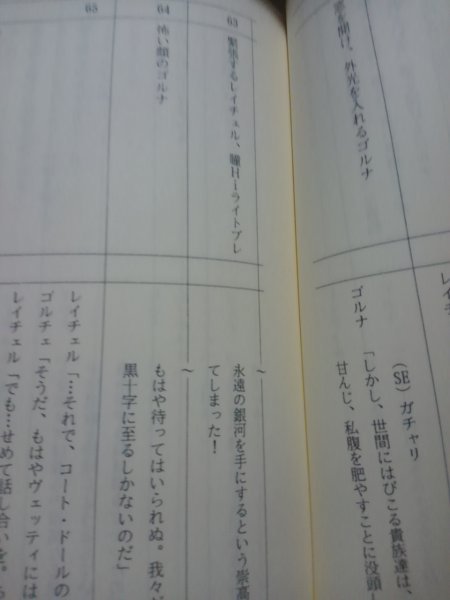 窓を開け、外光を入れるゴルナ
(SE) ガチャリ
ゴルナ 「しかし、世間にはびこる貴族達は、
甘んじ、私腹を肥やすことに没頭
63 緊張するレイチェル、瞳Hiライトブレ
〜
永遠の銀河を手にするという崇高
てしまった!
〜
64 怖い顔のゴルナ
もはや待ってはいられぬ。我々が
黒十字に至るしかないのだ」
65
レイチェル「…それで、コート・ドールの
ゴルチェ「そうだ、もはやヴェッティには
レイチェル「でも…せめて話し合いを。